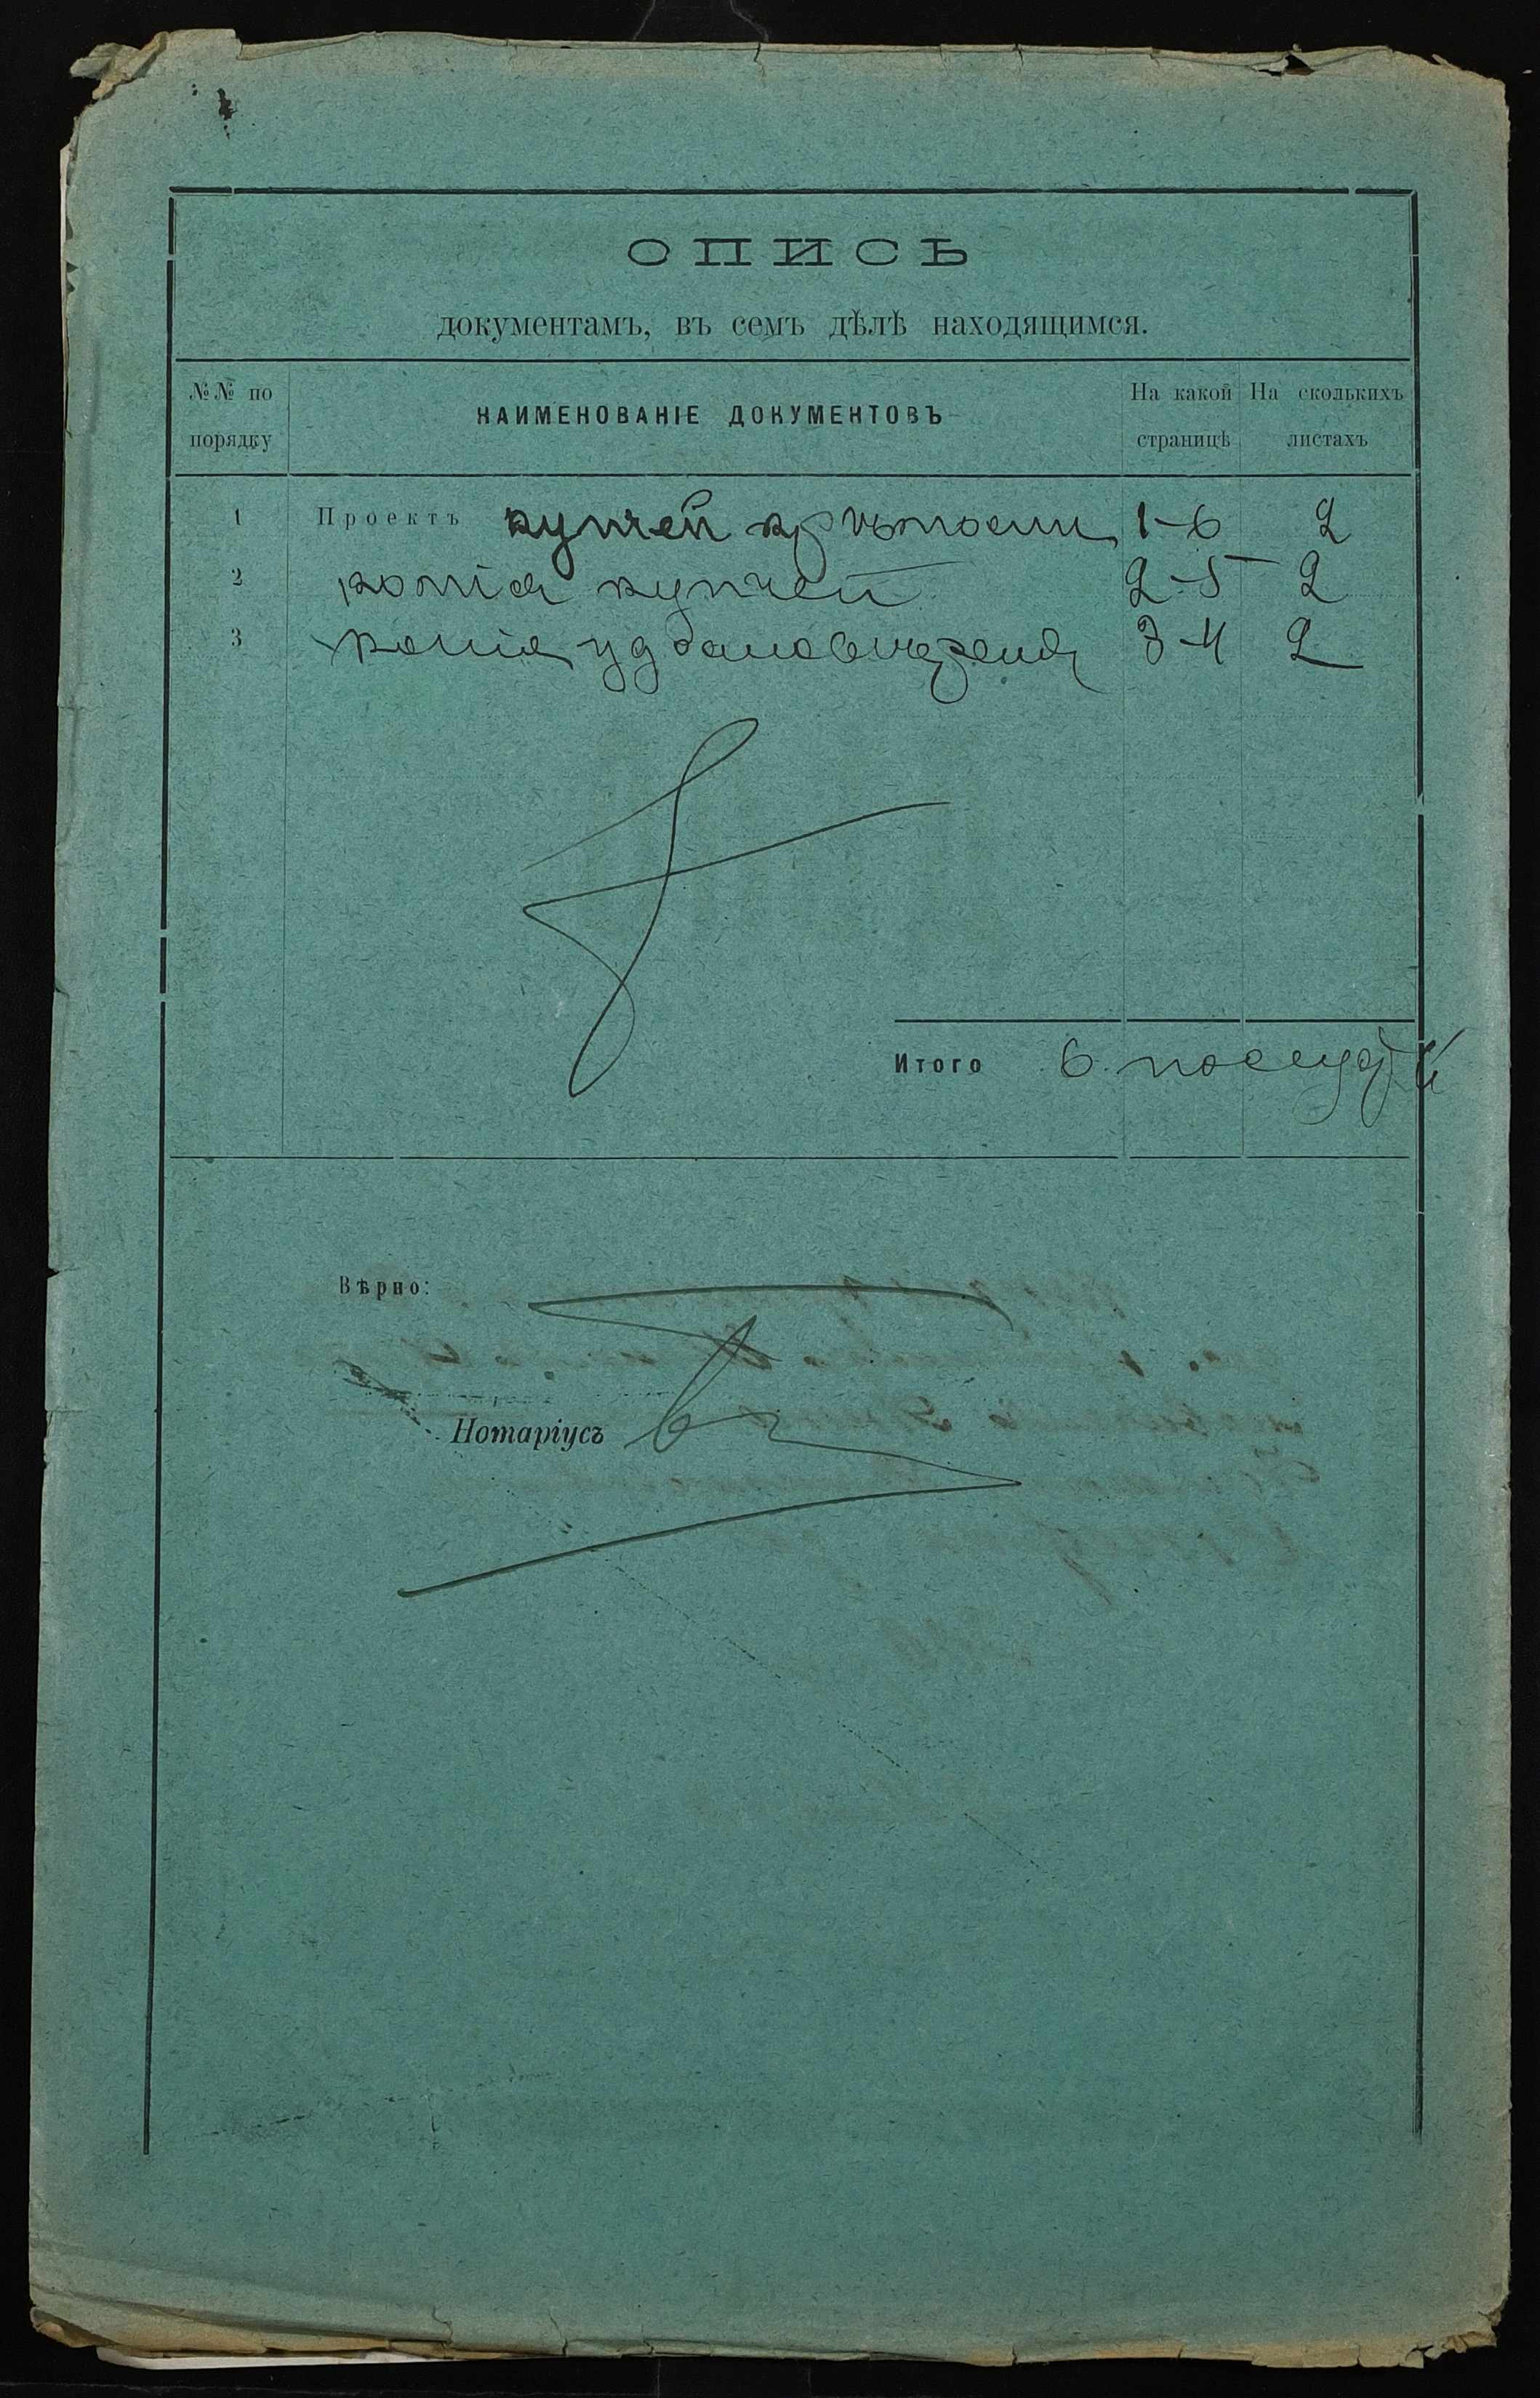 ОПИСЬ
документамъ, въ семъ дѣлѣ находящимся.
№№ по порядку НАИМЕНОВАНІЕ ДОКУМЕНТОВЪ На какой страницѣ На сколькихъ листахъ
1 Проектъ купчей крѣпости 1-6 2
2 копія купчей 2-5 2
3 копія 3-4 2
Итого 6
Вѣрно:
Нотаріусъ